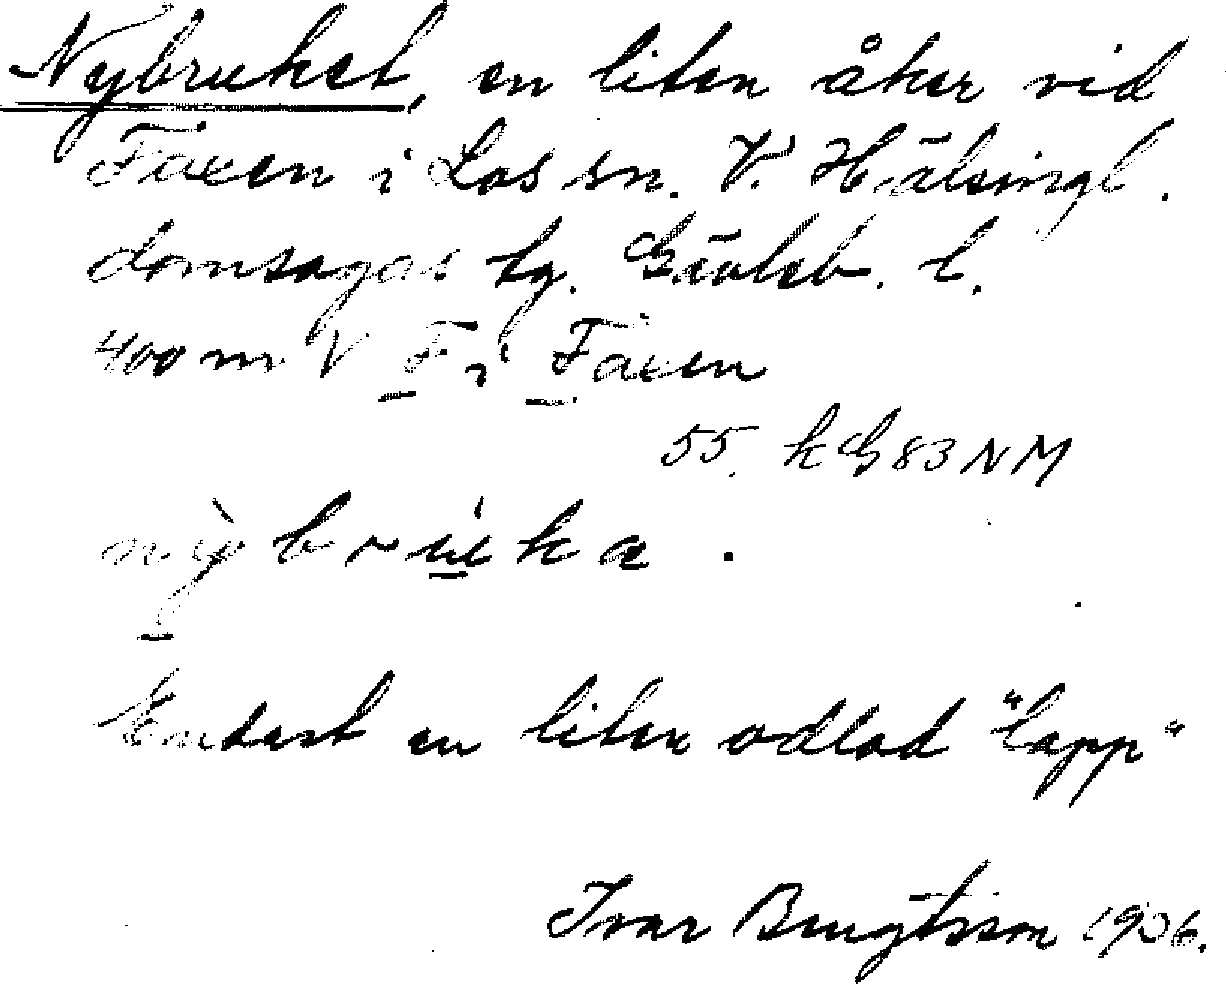 Nybruket, en liten åker vid
Faxen i Los sn. V. Hälsingl.
domsagas tg. Gävleb. l.
400 m V F i Faxen
55. k G 83 NM
Endast en liten odlad "lapp"
Ivar Bengtsson 1906.